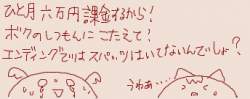 ひと月 六万円 課金するから!
ボクのしつもんに こたえて!
エンディングではスパッツはいてないんでしょ?
うわぁ・・・